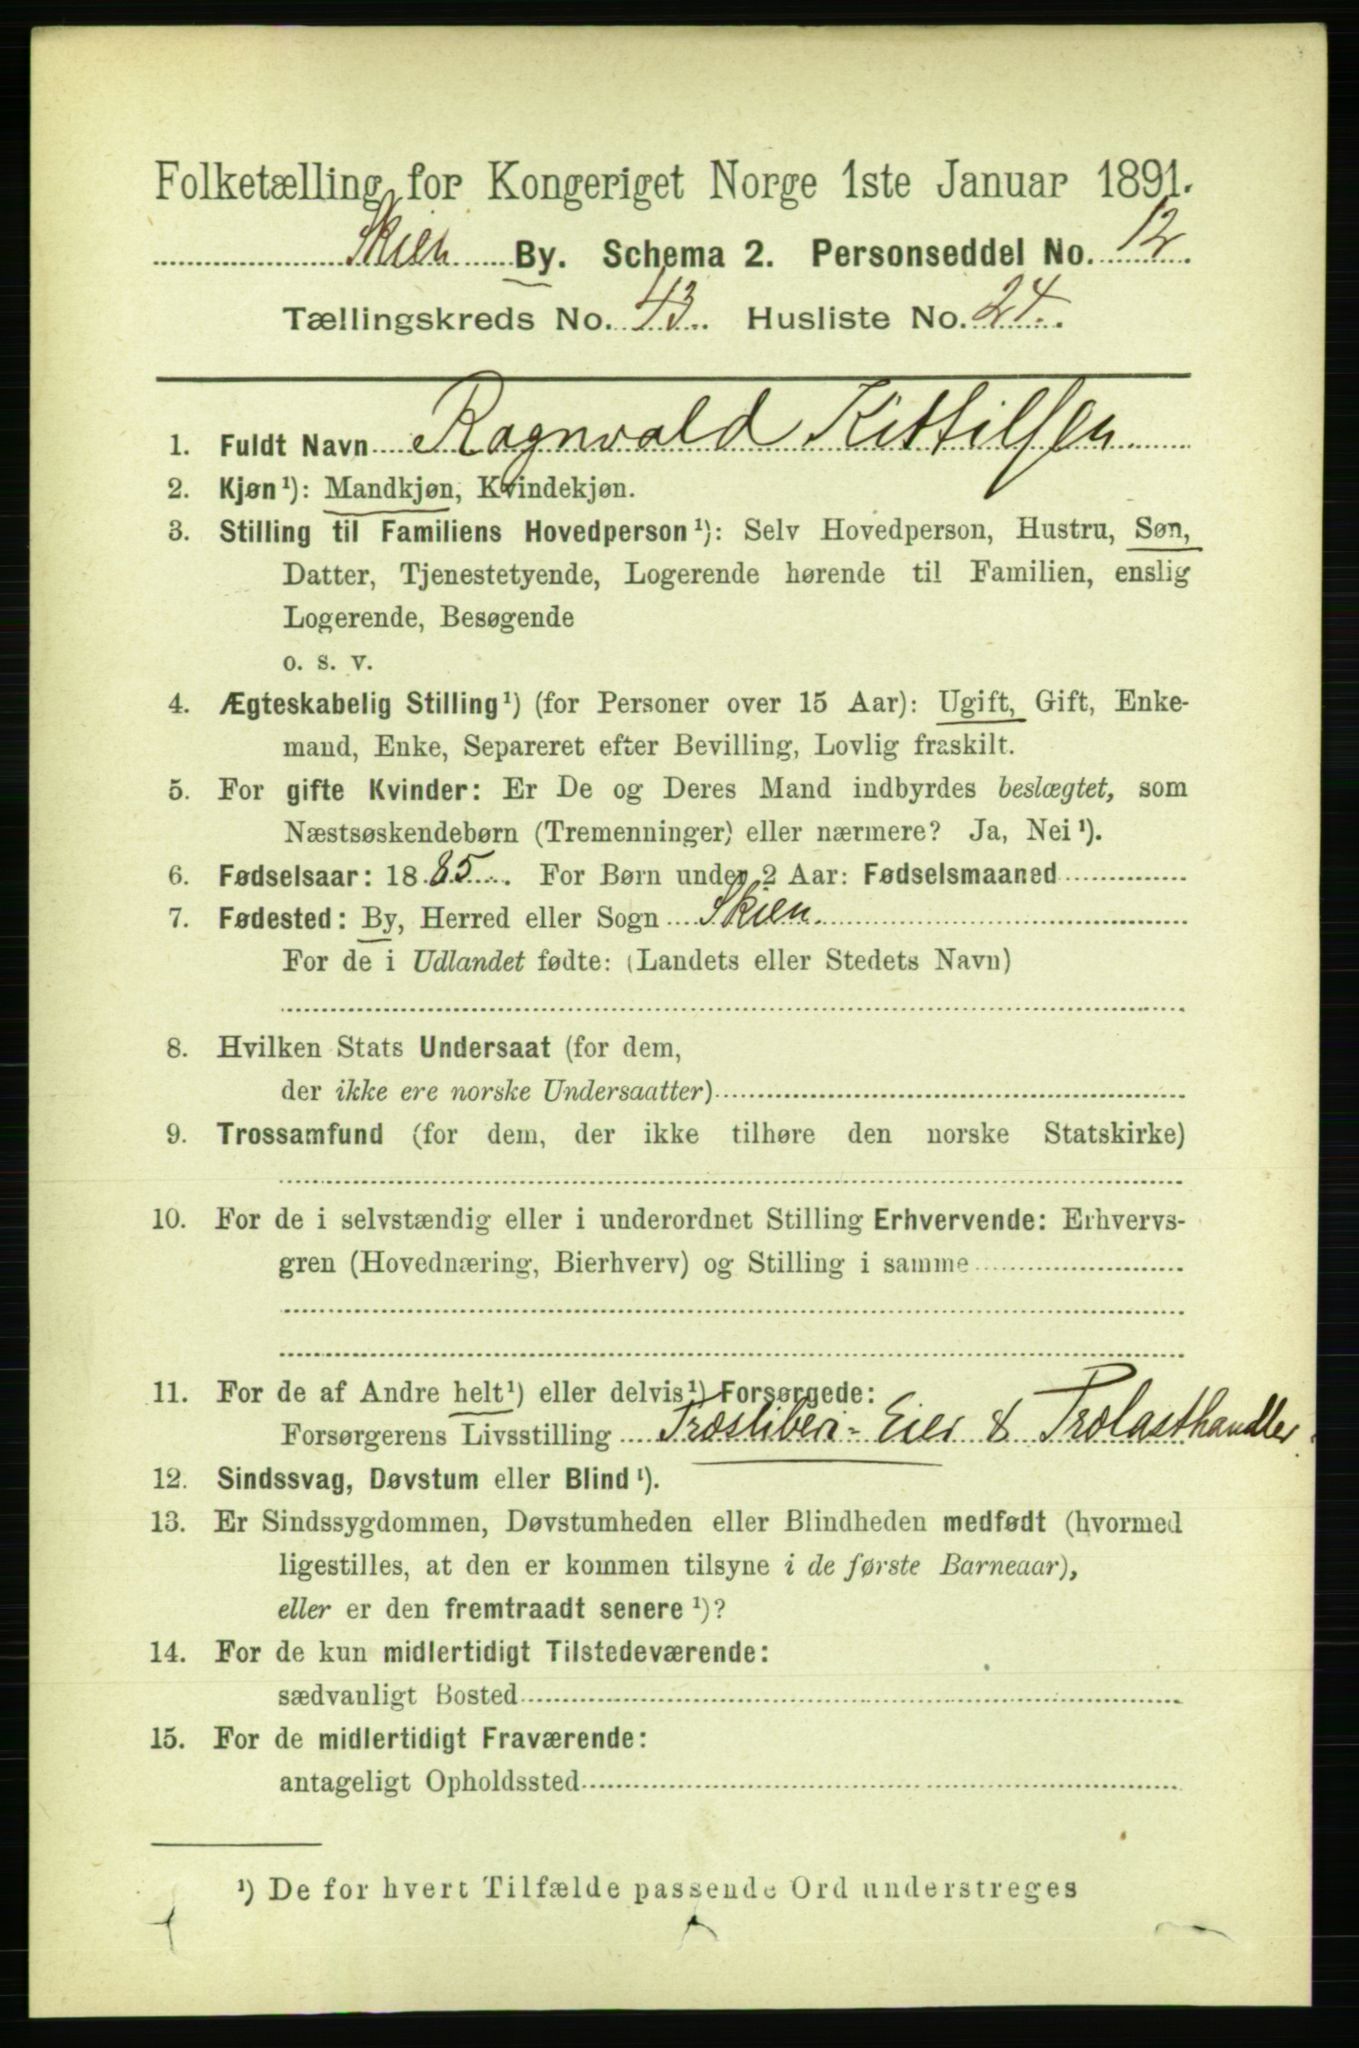 Folketælling for Kongeriget Norge 1ste Januar 1891.
Skien By. Schema 2. Personseddel No. 12.
Tællingskreds No. 43. Husliste No. 24.
1. Fuldt Navn Ragnvald Kittilsen
2. Kjøn¹): Mandkjøn, Kvindekjøn.
3. Stilling til Familiens Hovedperson¹): Selv Hovedperson, Hustru, Søn,
Datter, Tjenestetyende, Logerende hørende til Familien, enslig
Logerende, Besøgende
o. s. v.
4. Ægteskabelig Stilling¹) (for Personer over 15 Aar): Ugift, Gift, Enke-
mand, Enke, Separeret efter Bevilling, Lovlig fraskilt.
5. For gifte Kvinder: Er De og Deres Mand indbyrdes beslægtet, som
Næstsøskendebørn (Tremenninger) eller nærmere? Ja, Nei¹).
6. Fødselsaar: 1885. For Børn under 2 Aar: Fødselsmaaned
7. Fødested: By, Herred eller Sogn Skien.
For de i Udlandet fødte: (Landets eller Stedets Navn)
8. Hvilken Stats Undersaat (for dem,
der ikke ere norske Undersaatter)
9. Trossamfund (for dem, der ikke tilhøre den norske Statskirke)
10. For de i selvstændig eller i underordnet Stilling Erhvervende: Erhvervs-
gren (Hovednæring, Bierhverv) og Stilling i samme
11. For de af Andre helt¹) eller delvis¹) Forsørgede:
Forsørgerens Livsstilling Træsliberi-Eier & Trælasthandler.
12. Sindssvag, Døvstum eller Blind¹).
13. Er Sindssygdommen, Døvstumheden eller Blindheden medfødt (hvormed
ligestilles, at den er kommen tilsyne i de første Barneaar),
eller er den fremtraadt senere¹)?
14. For de kun midlertidigt Tilstedeværende:
sædvanligt Bosted
15. For de midlertidigt Fraværende:
antageligt Opholdssted
¹) De for hvert Tilfælde passende Ord understreges